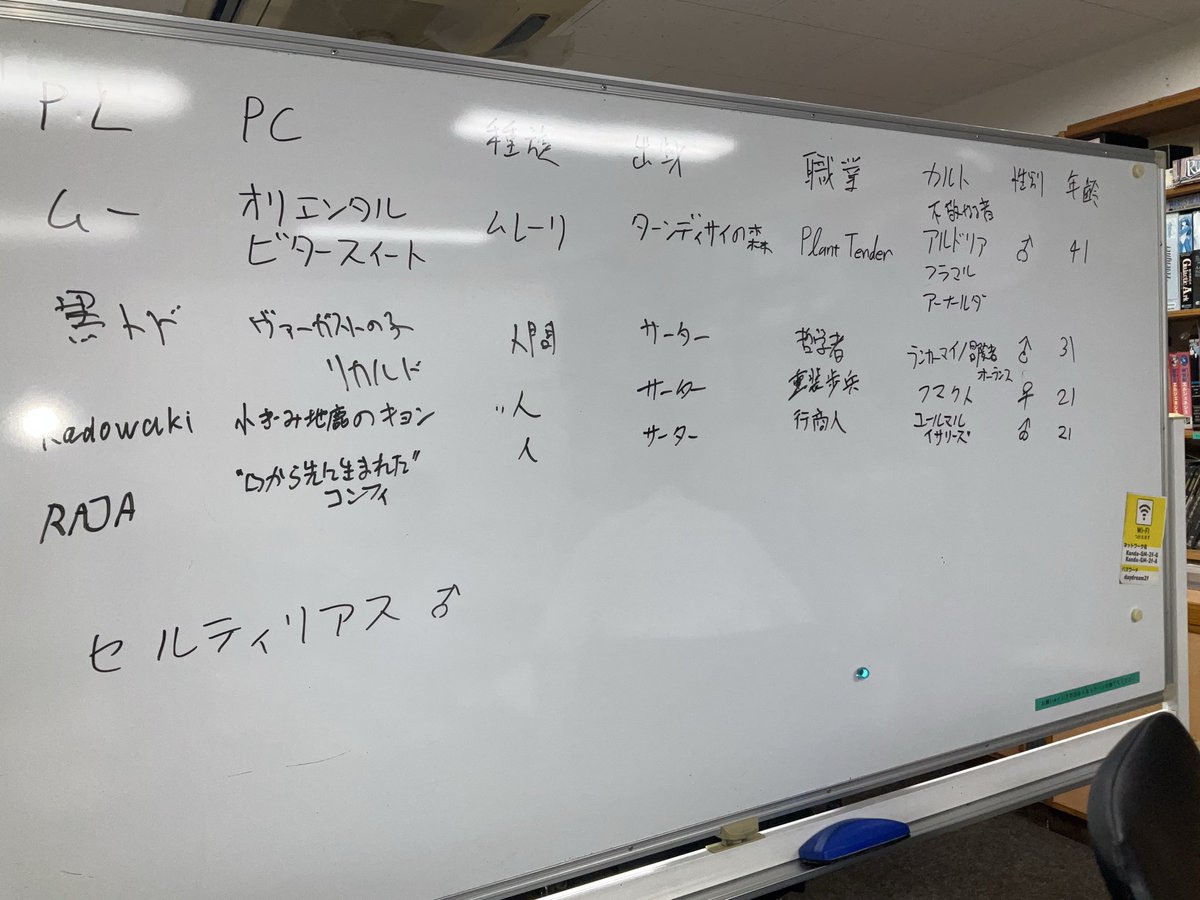 PL PC 種族 出身 職業 カルト 性別 年齢
ムー オリエンタル ムレーリ ターンディサイの森 Plant Tender 不敬な者 ♂ 41
ビタースイート アルドリア
フラマル
アーナールダ
黒トド ヴァーガストの子 人間 サーター 哲学者 ランカーマイ/冒険者 ♂ 31
リカルド オーランス
Kadowaki 水きみ地鹿のキョン 〃人 サーター 重装歩兵 フマクト ♀ 21
RAJA "口から先に生まれた" 人 サーター 行商人 ♂ 21
コンフィ イサリーズ
セルティリアス ♂
Wi-Fi
つかえます
ネットワーク名
Kanda-GM-2f-G
Kanda-GM-2f-A
パスワード
daydream2f
Galactic
Art